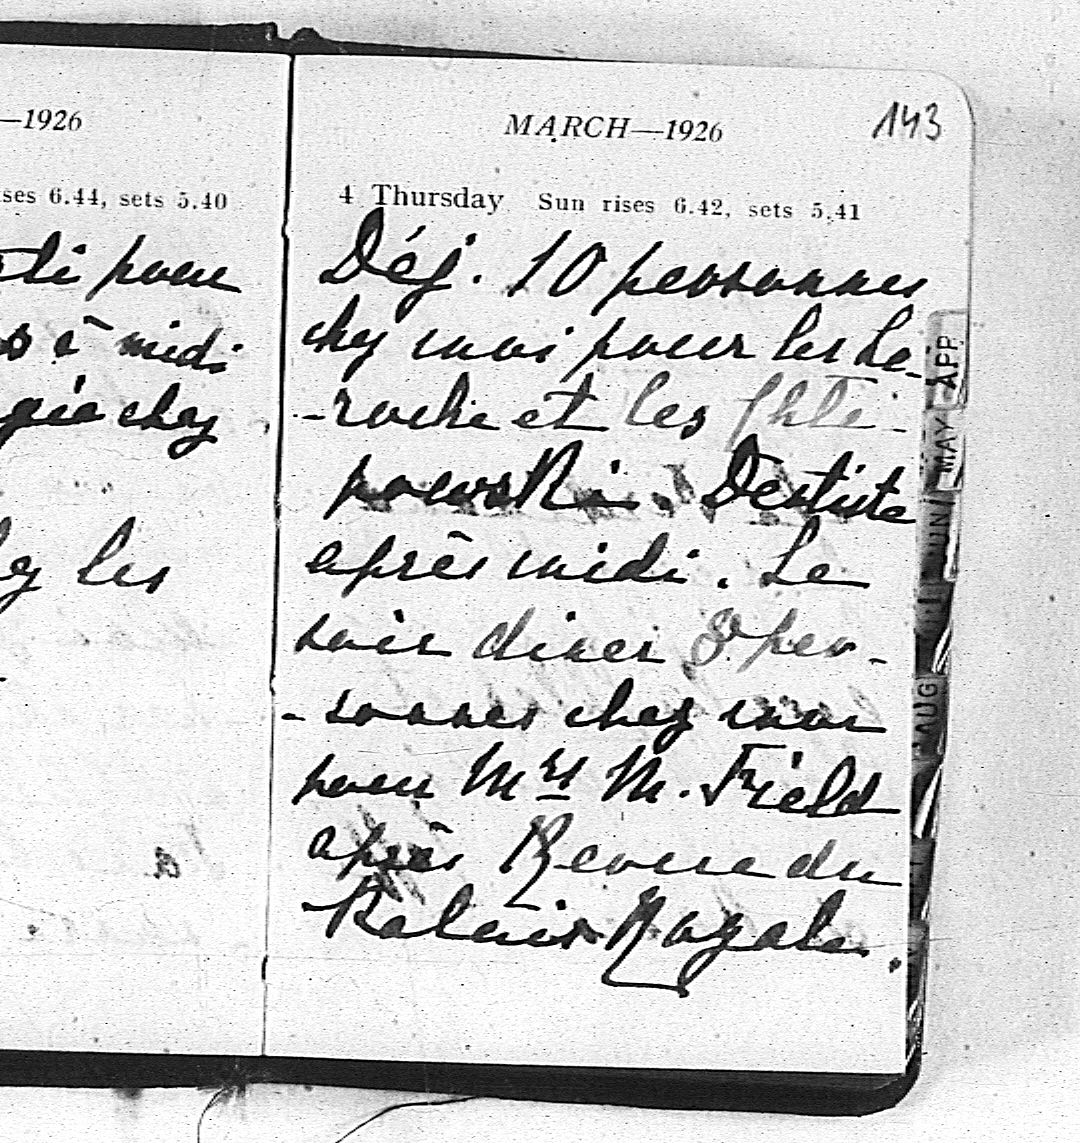 —1926
ses 6.44, sets 5.40
pour
à midi
chez
les
MARCH—1926
143
4 Thursday Sun rises 6.42, sets 5.41
Déj. 10 personnes
chez moi pour les La-
-roche et les Chla-
powski. Dentiste
après midi. Le
soir diner 8 per-
-sonnes chez moi
pour Mrs M. Field
après Revue du
Palais Royale.
APR
MAY
JUN
AUG